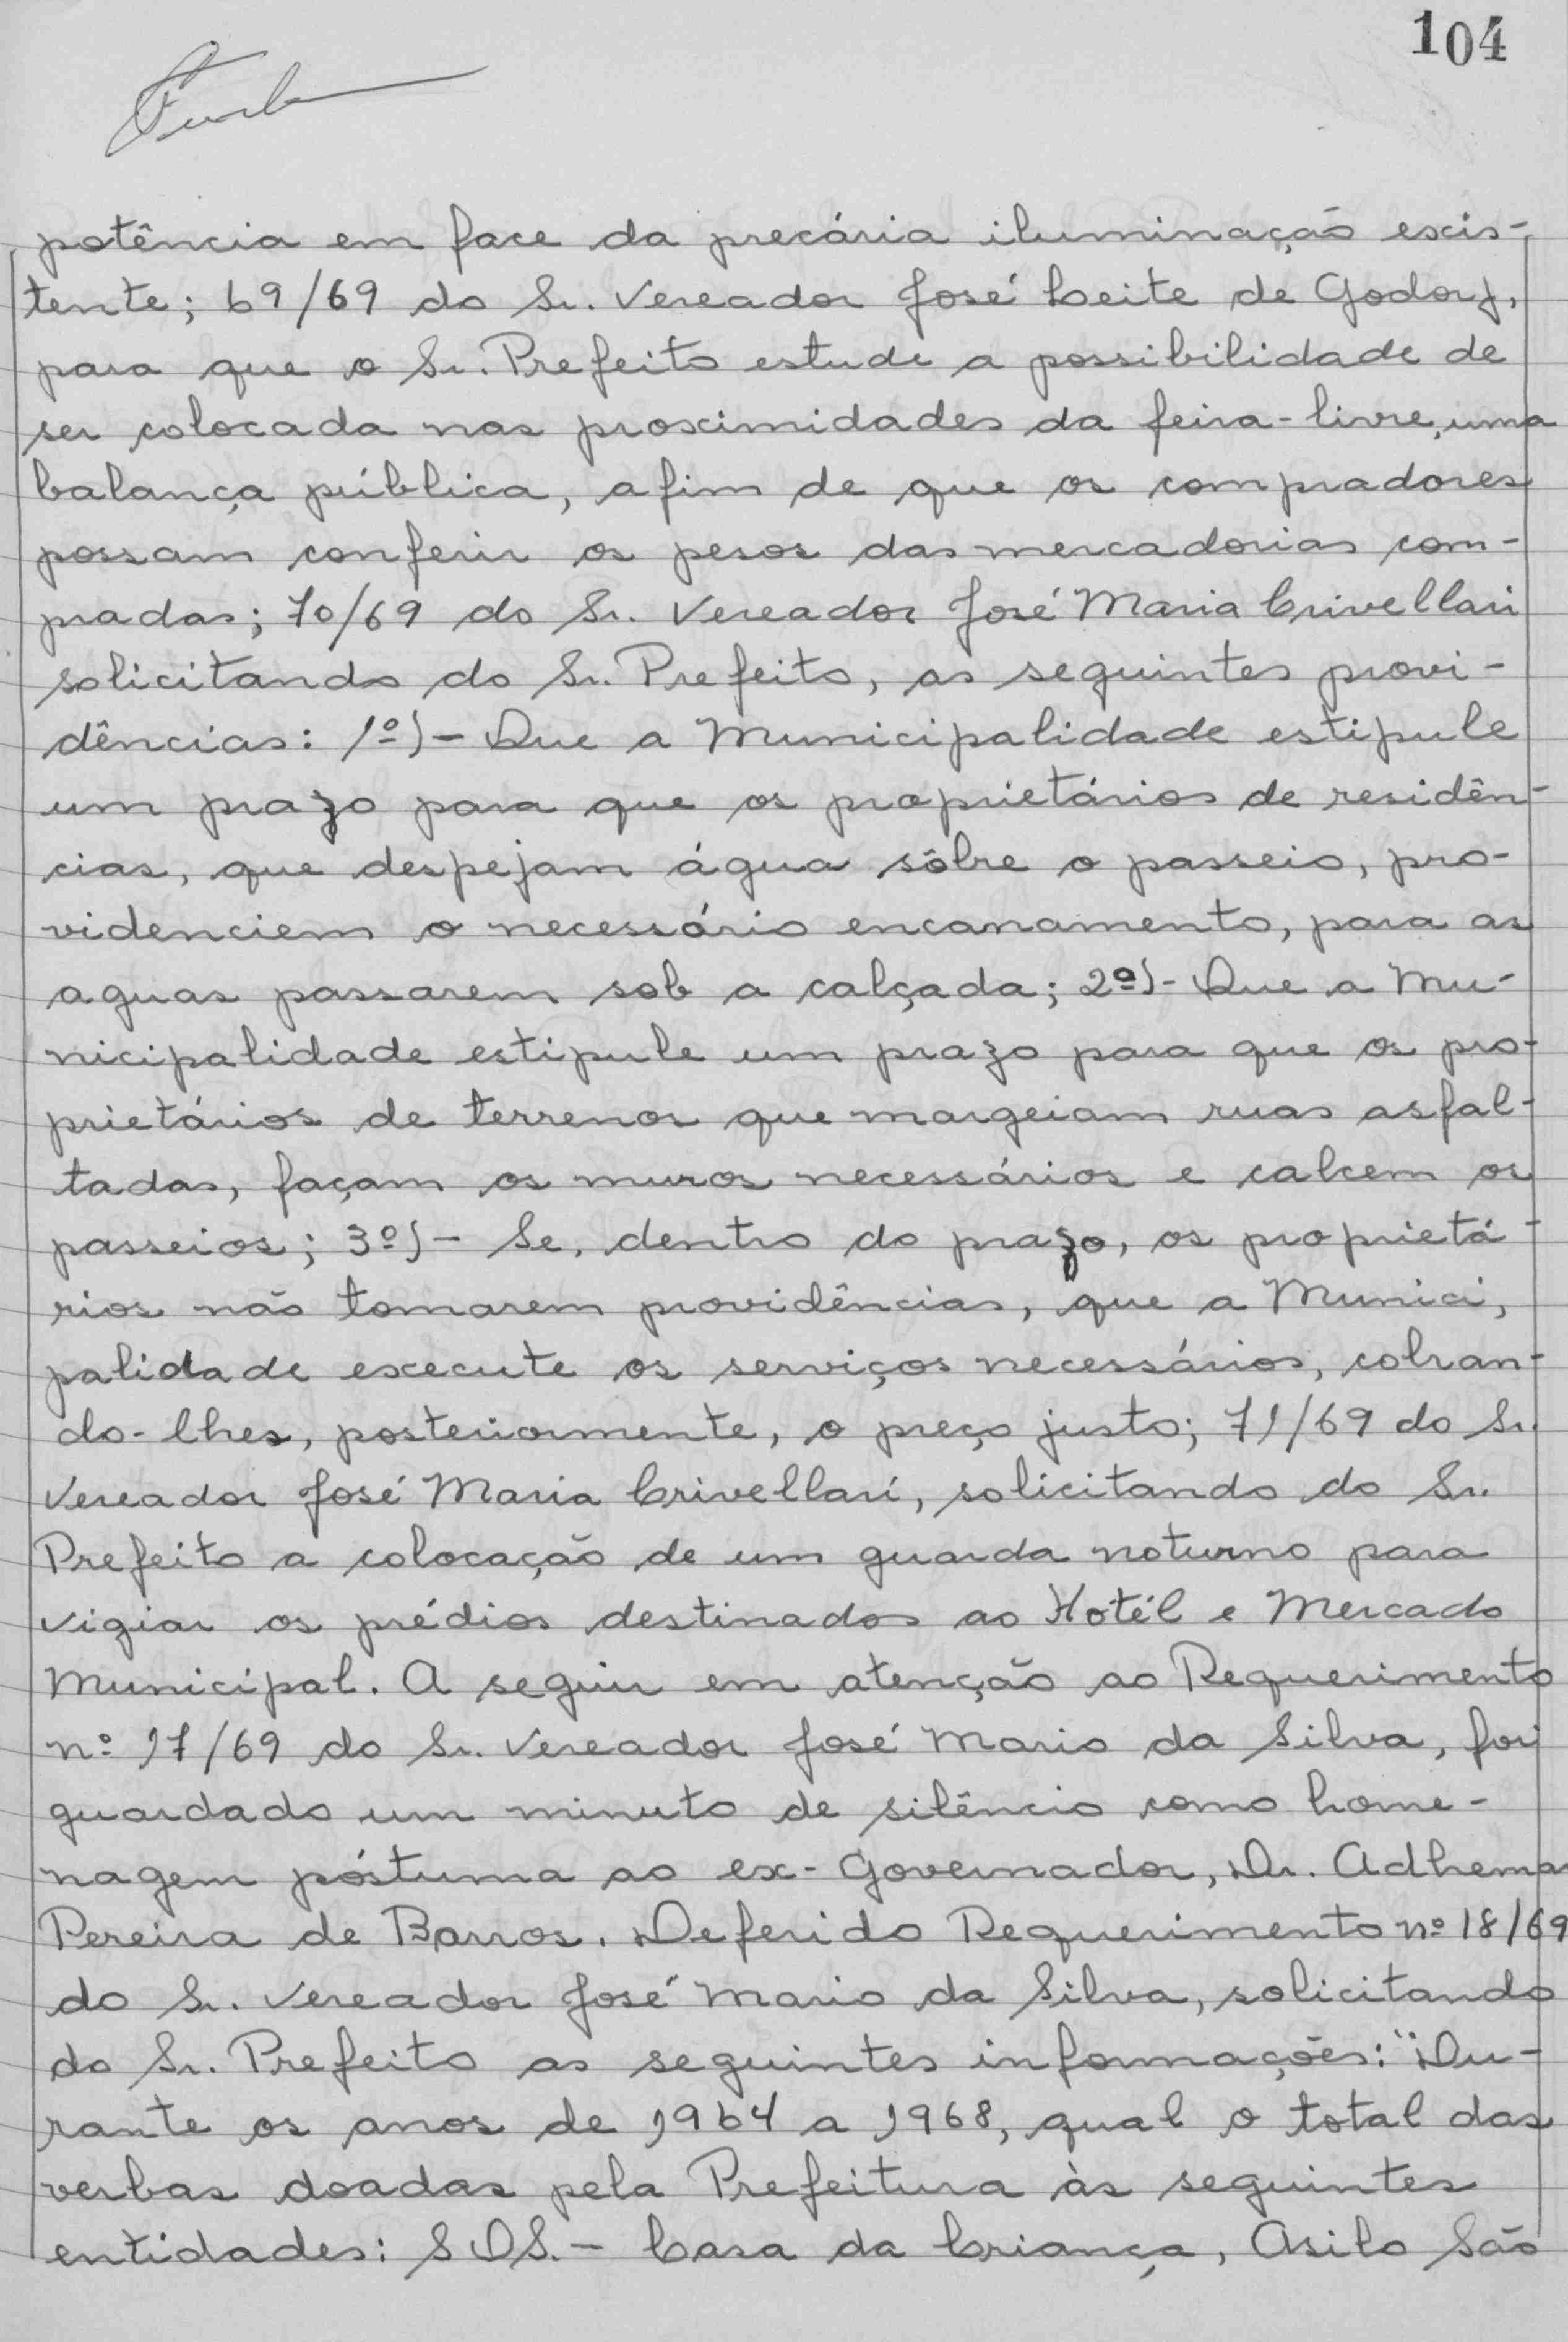 104
potência em face da precária iluminação exis-
tente; 69/69 do Sr. Vereador José Leite de Godoy,
para que o Sr. Prefeito estude a possibilidade de
ser colocada nas proximidades da feira-livre, uma
balança pública, afim de que os compradores
possam conferir os pesos das mercadorias com-
pradas; 70/69 do Sr. Vereador José Maria Crivellari
solicitando do Sr. Prefeito, as seguintes provi-
dências: 1º)- Que a Municipalidade estipule
um prazo para que os proprietários de residên-
cias, que despejam água sôbre o passeio, pro-
videnciem o necessário encanamento, para as
aguas passarem sob a calçada; 2º)- Que a Mu-
nicipalidade estipule um prazo para que os pro-
prietários de terrenos que margeiam ruas asfal-
tadas, façam os muros necessários e calcem os
passeios; 3º)- Se, dentro do prazo, os proprietá-
rios não tomarem providências, que a Munici,
palidade execute os serviços necessários, cobran-
do-lhes, posteriormente, o preço justo; 71/69 do Sr.
Vereador José Maria Crivellari, solicitando do Sr.
Prefeito a colocação de um guarda noturno para
vigiar os prédios destinados ao Hotél e Mercado
Municipal. A seguir em atenção ao Requerimento
nº 17/69 do Sr. Vereador José Mario da Silva, foi
guardado um minuto de silêncio como home-
nagem póstuma ao ex-Governador, Dr. Adhemar
Pereira de Barros. Deferido Requerimento nº 18/69
do Sr. Vereador José Mario da Silva, solicitando
do Sr. Prefeito as seguintes informações: "Du-
rante os anos de 1964 a 1968, qual o total das
verbas doadas pela Prefeitura às seguintes
entidades: SOS. - Casa da Criança, Asilo São